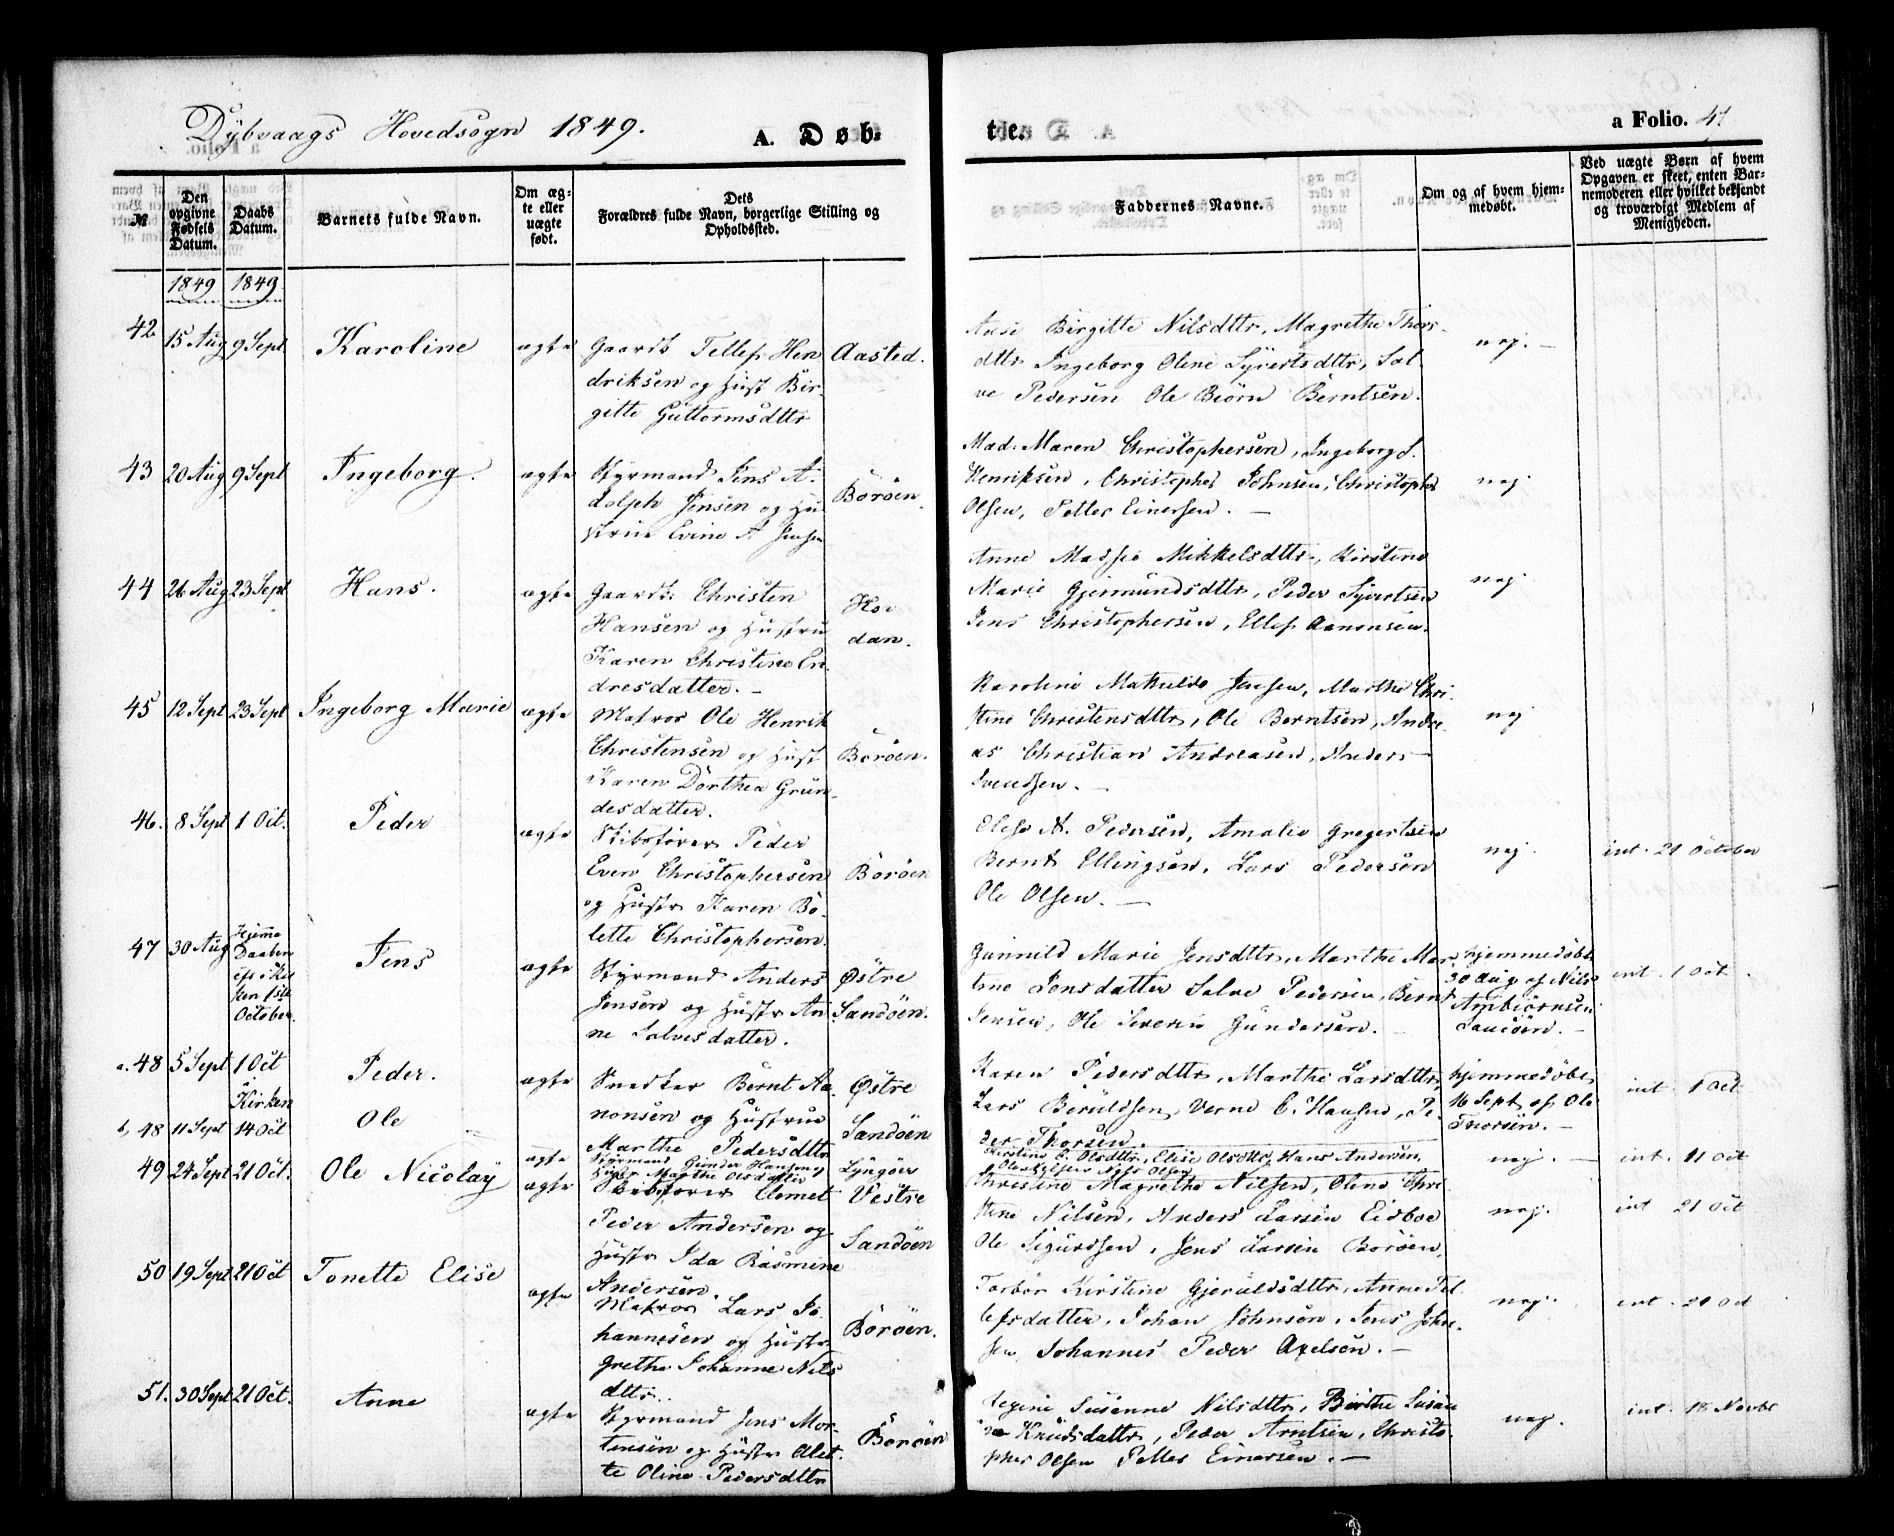 Dybvaags Hovedsogn 1849.
A. Døb-
te.
a Folio. 41
No
Den opgivne Fødsels Datum.
Daabs Datum.
Barnets fulde Navn.
Om ægte eller uægte født.
Dets Forældres fulde Navn, borgerlige Stilling og Opholdssted.
Faddernes Navne.
Om og af hvem hjemmedøbt.
Ved uægte Børn af hvem Opgaven er skeet, enten Barnemoderen eller hvilket bekjendt og troværdigt Medlem af Menigheden.
1849 1849
42 15 Aug 9 Sept. Karoline ægte
Gaardb. Tellef Hen
driksen og Hust Bir-
gitte Guttormsdttr
Aasted.
Aase Birgitte Nilsdttr, Magrethe Thors-
dttr Ingeborg Oline Syvertsdttr, Sal-
ve Pedersen Ole Biörn Berntsen.
nej. —
43 20 Aug 9 Sept Ingeborg. ægte
Styrmand Jens A-
dolph Jensen og Hu-
strue Evine A Jensen
Böröen.
Mad. Maren Christophersen, Ingeborg S.
Henriksen, Christopher Johnsen, Christopher
Olsen, Petter Einersen. —
nej
44 26 Aug 23 Sept Hans. ægte
Gaardb. Christen
Hansen og Hustru
Karen Christine En-
dresdatter. —
dan.
Anne Mikkelsdttr, Kirstine
Marie Gjermundsdttr, Peder Syvertsen
Jens Christophersen, Ellef Aanonsen.
nej
45 12 Sept 23 Sept Ingeborg Marie ægte
Matros Ole Henrik
Christensen og Hust
Karen Dorthea Grun-
desdatter.
Böröen.
Karoline Mathilde Jensen, Marthe Chri-
stine Christensdttr, Ole Berntsen, Andre-
as Christian Andreasen, Anders
Svendsen. —
nej
46. 8 Sept 1 Oct. Peder ægte
Skibsförer Peder
Even Christophersen
og Hustr Karen Bo-
lette Christophersen.
Böröen
Elise A. Pedersen, Amalie Gregertsen
Bernt Ellingsen, Lars Pedersen
Ole Olsen. —
nej.
int. 21 October
47 30 Aug
Hjemme
Daaben
Kir
ken 1ste
October.
Jens ægte
Styrmand Anders
Jensen og Hustr An
ne Salvesdatter.
Østre
Sandöen.
Gunnild Marie Jensdttr, Marthe Mar-
tine Jensdatter Salve Pedersen, Bernt
Jensen, Ole Severin Gundersen. —
hjemmedöbt
30 Aug af Nils
Ambiörnsen
Sandöen. —
int. 1 Oct.
a. 48 5 Sept 1 Oct Peder. ægte
i Kirken
b, 48 11 Sept 14 Oct Ole
Snedker Bernt Aa-
nonsen og Hustrue
Marthe Pedersdttr
Østre
Sandöen
Karen Pedersdttr, Marthe Larsdttr,
Lars Beruldsen, Verne C. Hansen, Pe-
der Thorsen.
hjemmedöbt
16 Sept af Ole
Thorsen. —
int 1 Oct
ægte
Styrmand Gunder Hansen,
Magthe Olsdatter
Lyngöer
Kirstine E. Olsdttr, Elise Olsdttr, Hans Andersen,
nej. —
int. 11 Oct
49 24 Sept 21 Oct. Ole Nicolaÿ ægte
Skibsförer Clemet
Peder Andersen og
Hustr Ida Rasmine
Andersen.
Vestre
Sandöen
Christine Magrethe Nilsen, Olene Chri-
stine Nilsen, Anders Larsen Eidboe
Ole Sigurdsen, Jens Larsen Boröen,
nej.
int 21 Oct
50 19 Sept 21 Oct Tonette Elise ægte
Matros Lars Jo
hannesen og Hustr
Grethe Johanne Nils
dttr.
Böröen.
Torbör Kirstine Gjeruldsdttr, Anne Tel
lefsdatter, Johan Johnsen, Jens John-
sen, Johannes Peder Axelsen. —
nej.
int. 21 Oct
51. 30 Sept 21 Oct. Anne ægte
Styrmand Jens Mor-
tensen og Hustr Alet-
te Oline Pedersdttr
Boröen
Regine Susanne Nilsdttr, Birthe Susan
ne Knudsdattr, Peder Arntsen, Christo-
pher Olsen Petter Einersen. —
nej.
int. 18 Novbr